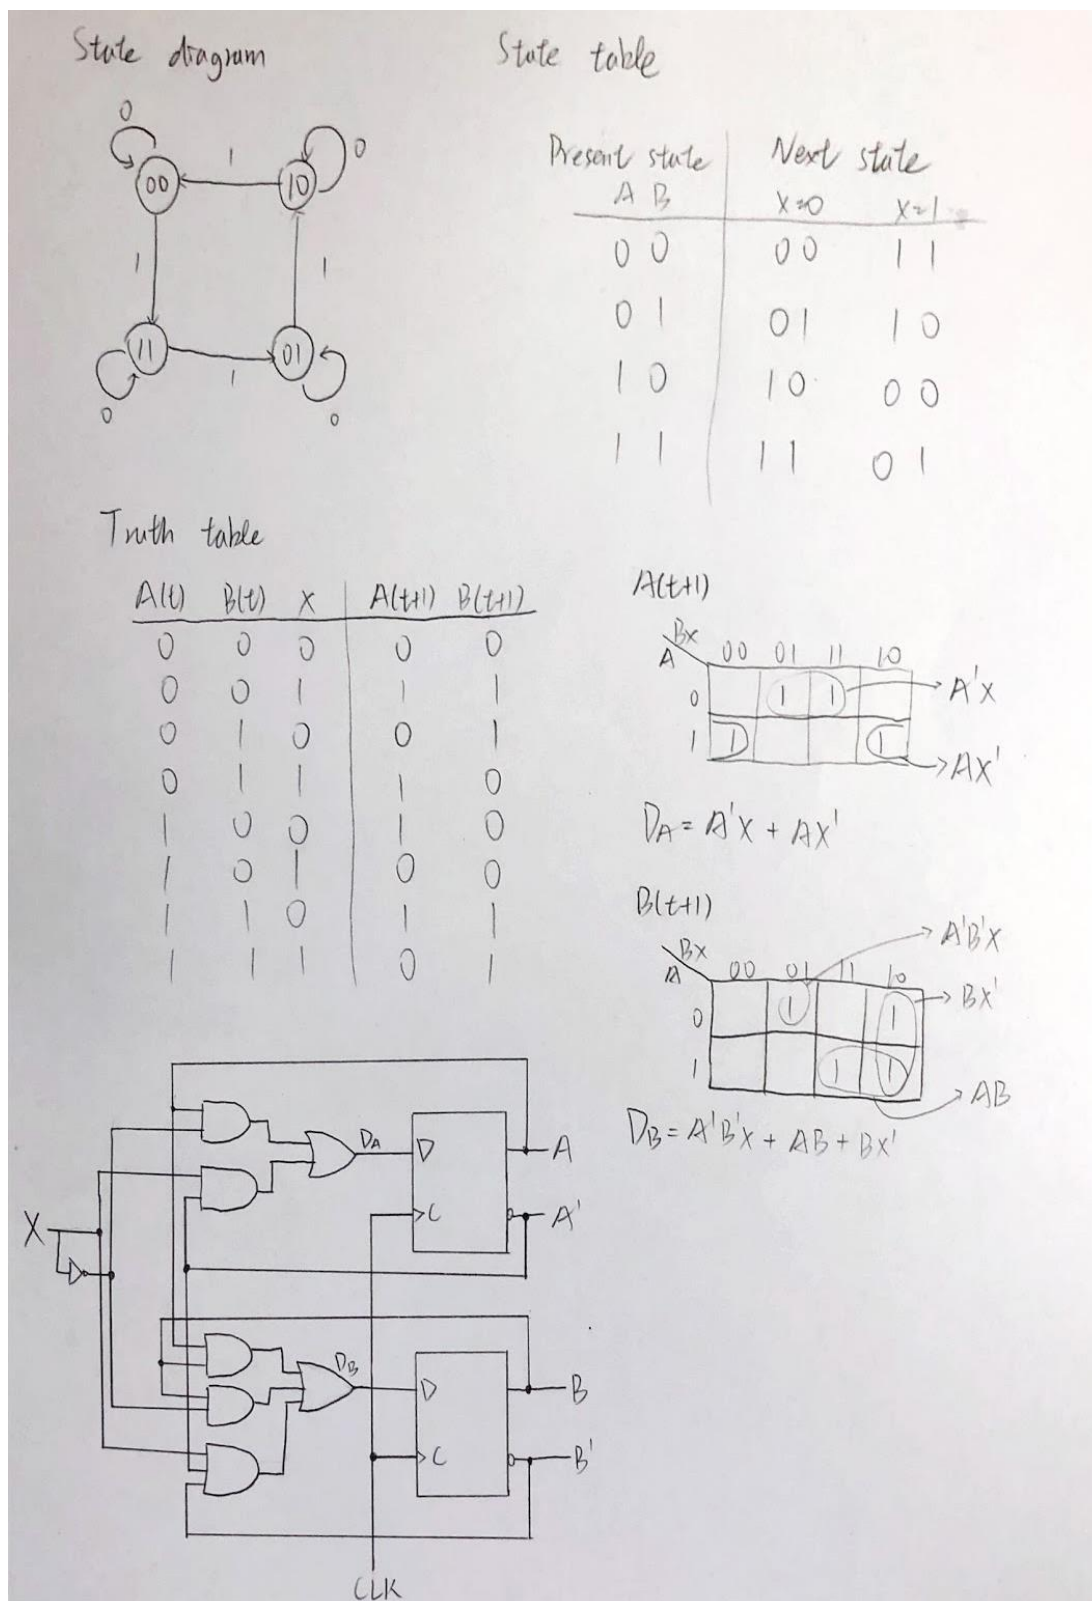 State diagram
0
0
1
00
10
1
1
11
01
1
0
0
State table
Present state Next state
A B X=0 X=1
0 0 0 0 1 1
0 1 0 1 1 0
1 0 1 0 0 0
1 1 1 1 0 1
Truth table
A(t) B(t) X A(t+1) B(t+1)
0 0 0 0 0
0 0 1 1 1
0 1 0 0 1
0 1 1 1 0
1 0 0 1 0
1 0 1 0 0
1 1 0 1 1
1 1 1 0 1
A(t+1)
Bx
A 00 01 11 10
0 1 1 A'X
1 1 1 AX'
DA = A'X + AX'
B(t+1)
A'B'X
Bx
A 00 01 11 10
0 1 1 BX'
1 1 1 AB
DB = A'B'X + AB + BX'
DA D A
C A'
X
DB D B
C B'
CLK